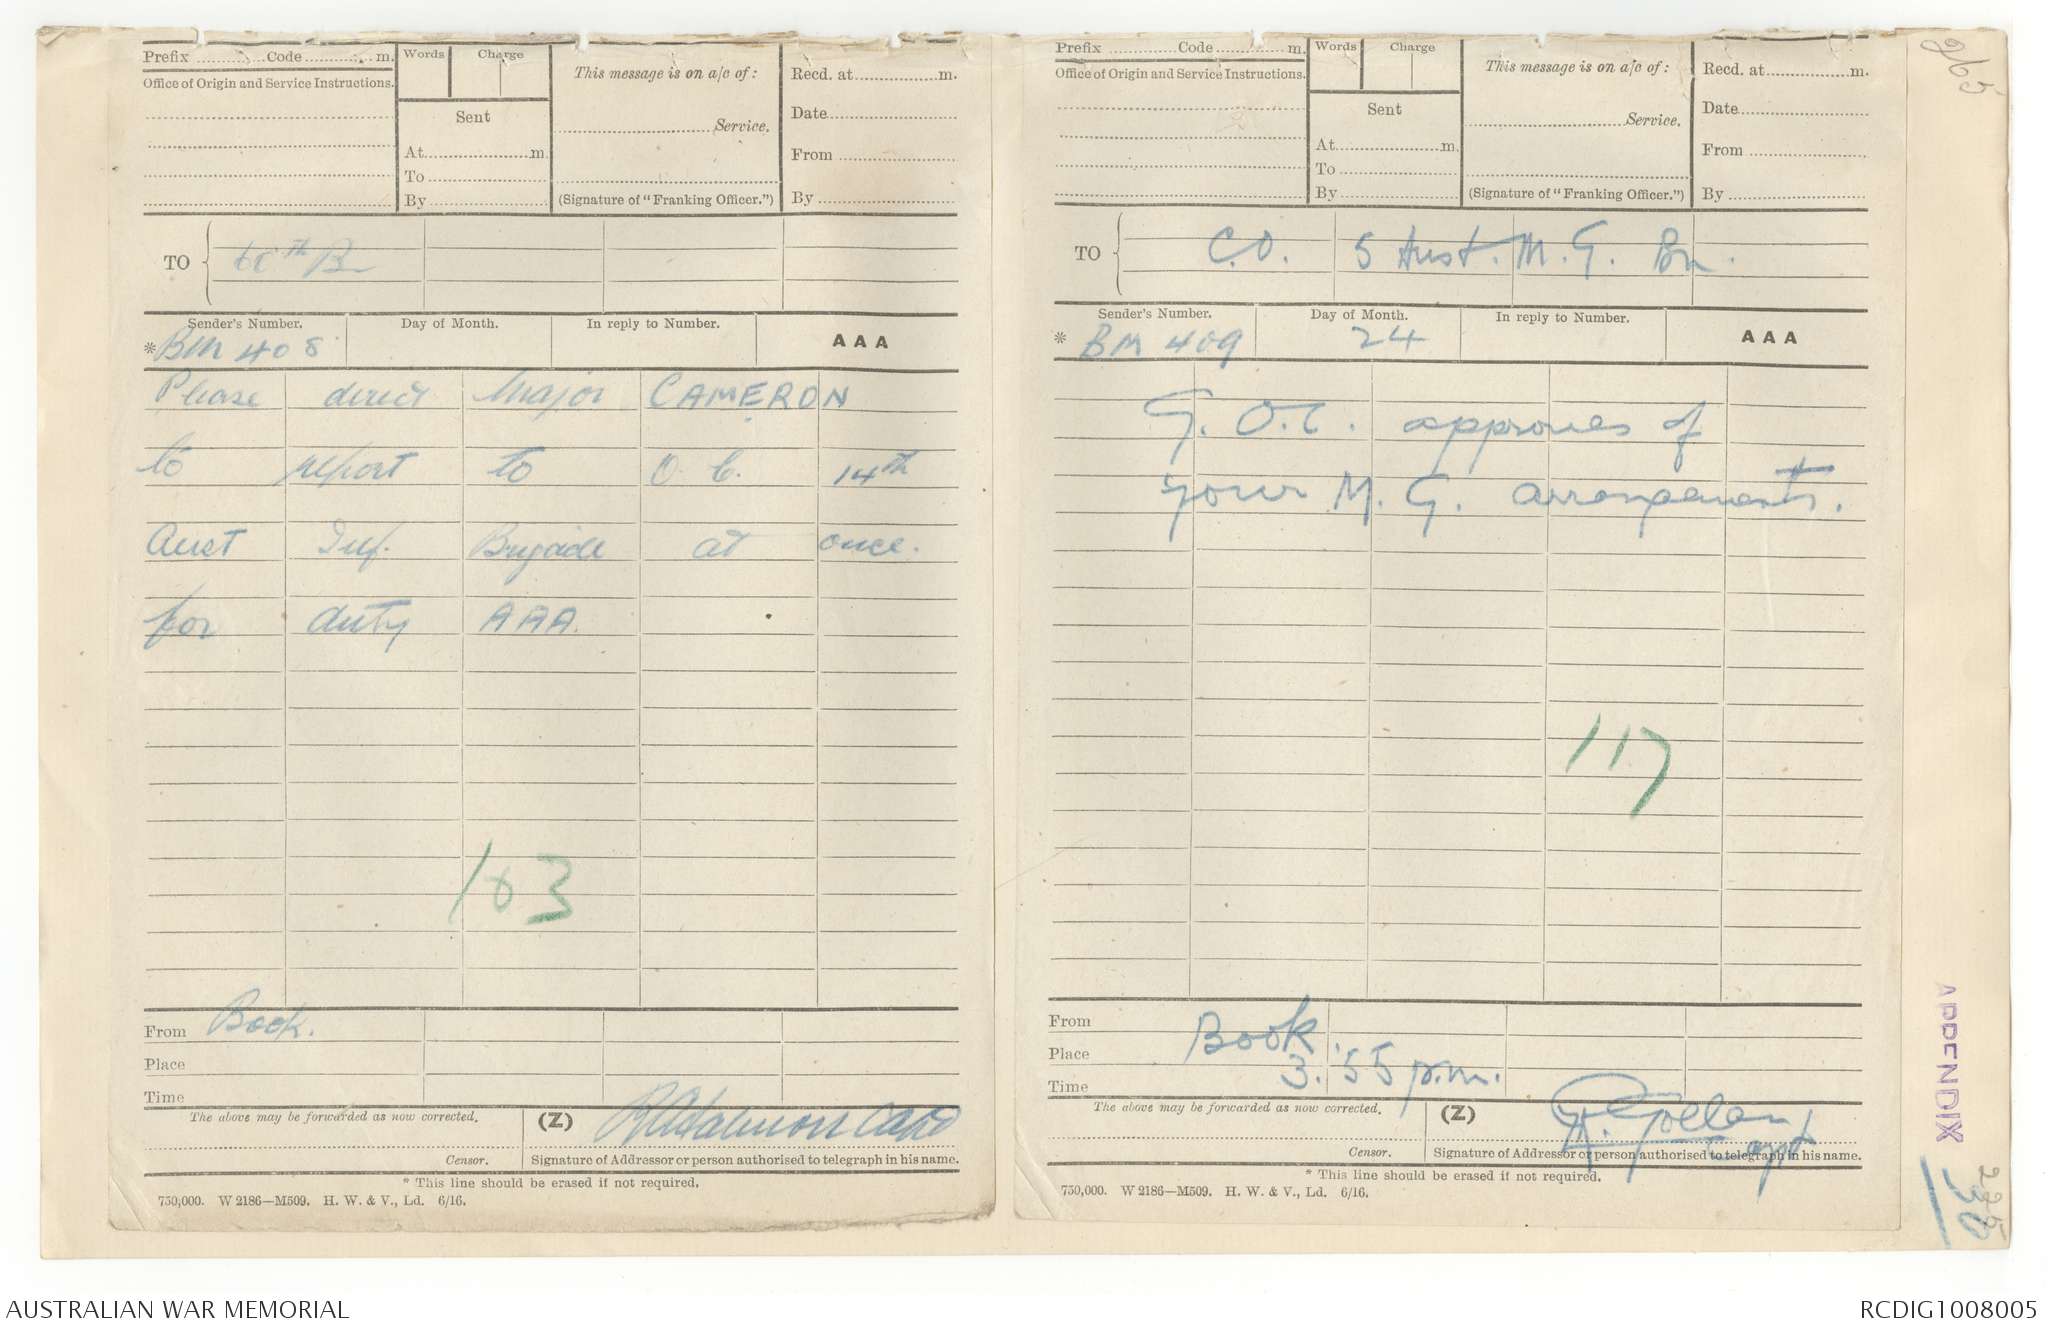 Prefix ............ Code ............... m.
Words Charge
This message is on a/c of :
Recd. at ............... m.
Office of Origin and Service Instructions.
Sent
Date
Service.
At ............... m.
From
To
By
(Signature of "Franking Officer.")
By
TO
60th Bn
Sender's Number. Day of Month. In reply to Number.
* BM 408 AAA
Please direct Major CAMERON
to report to O.C. 14th
Aust Inf. Brigade at once.
for duty AAA.
103
From Book.
Place
Time
The above may be forwarded as now corrected. (Z)
Censor. Signature of Addressor or person authorised to telegraph in his name.
* This line should be erased if not required.
750,000. W 2186—M509. H. W. & V., Ld. 6/16.
Prefix ............ Code ............... m.
Words Charge
This message is on a/c of :
Recd. at ............... m.
Office of Origin and Service Instructions.
Sent
Date
Service.
At ............... m.
From
To
By
(Signature of "Franking Officer.")
By
TO
C.O. 5 Aust. M.G. Bn.
Sender's Number. Day of Month. In reply to Number.
* BM 409 24 AAA
G.O.C. approves of
your M.G. arrangements.
117
From Book
Place
Time 3.55 p.m.
The above may be forwarded as now corrected. (Z)
Censor. Signature of Addressor or person authorised to telegraph in his name.
* This line should be erased if not required.
750,000. W 2186—M509. H. W. & V., Ld. 6/16.
265
APPENDIX
225
AUSTRALIAN WAR MEMORIAL
RCDIG1008005